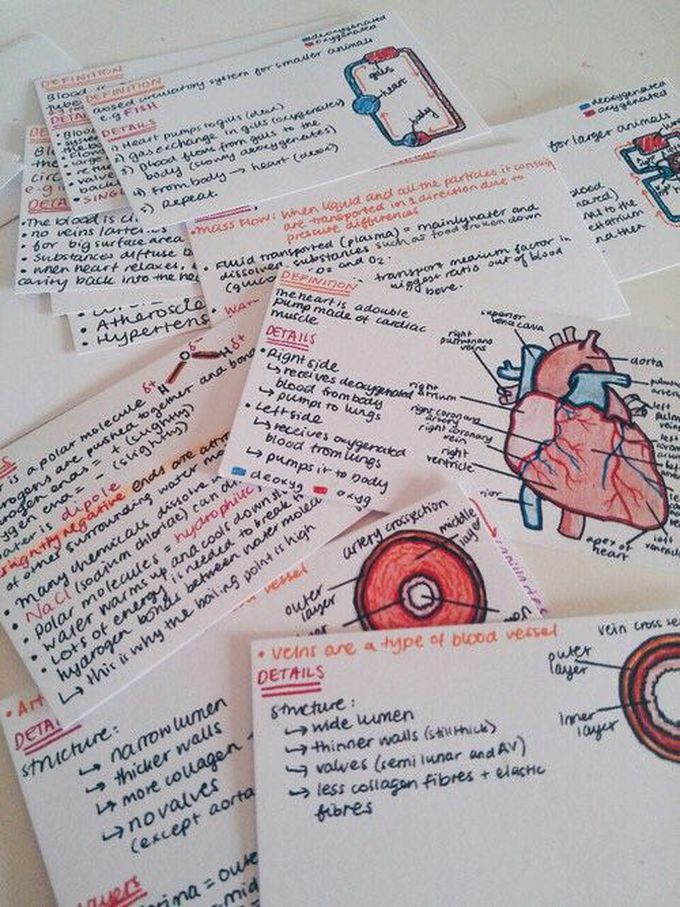 DEFINITION
Blood is
tube
DETA
Blood
DEFINITION
closed circulatory system for smaller animals
e.g FISH
DETAILS
1) Heart pumps to gills (deox)
2) gas exchange in gills (oxygenates)
3) Blood flows from gills to the
body (slowly deoxygenates)
4) from body → heart (deox)
5) Repeat
deoxygenated
oxygenated
gills
heart
body
deoxygenated
oxygenated
for larger animals
blood
to the
SINGL
DETA
The blood is
no veins
for big surface area
substances diffuse
when heart relaxes,
cavity back into the he
Atheroscle
Hypertens
Mass flow: when liquid and all the particles it contains
are transported in 1 direction due to
pressure differences
fluid transported (plasma) = mainly water and
dissolved substances such as food broken down
(gluco and O₂.
transport medium factor in
biggest ratio out of blood
above.
DEFINITION
The heart is a double
pump made of cardiac
muscle
DETAILS
• Right side
↳ receives deoxygenated
blood from body
↳ pumps to lungs
• Left side
↳ receives oxygenated
blood from lungs
↳ pumps it to body
deoxyg oxyg
superior
vena cava
right
pulmonary
veins
right
atrium
right coronary
artery
right coronary
vein
right
ventricle
rior
aorta
pulmon
artery
left
pulmon
veins
left
atrium
left
apex of
heart
left
ventricle
wat
δ-
δ+ H O H δ+
is a polar molecule
rogens are pushed together and bond
rogen ends = + (slightly)
ygen end = - (slightly)
water is dipole
slightly negative ends are attra
of other surrounding water mo
• many chemicals dissolve
• NaCl (sodium chloride) can di
• polar molecules = hydrophilic
• water warms up and cools down sl
• Lots of energy is needed to break
hydrogen bonds between water molecu
↳ this is why the boiling point is high
artery crossection
middle
layer
outer
layer
lumen
vessel
capillaries
• Art
DETAI
structure:
↳ narrow lumen
↳ thicker walls
↳ more collagen
↳ no valves
(except aorta
Layers
= oute
mid
• veins are a type of blood vessel
DETAILS
structure:
↳ wide lumen
↳ thinner walls (still thick)
↳ valves (semi lunar and AV)
↳ less collagen fibres + elastic
fibres
vein cross se
outer
layer
inner
layer